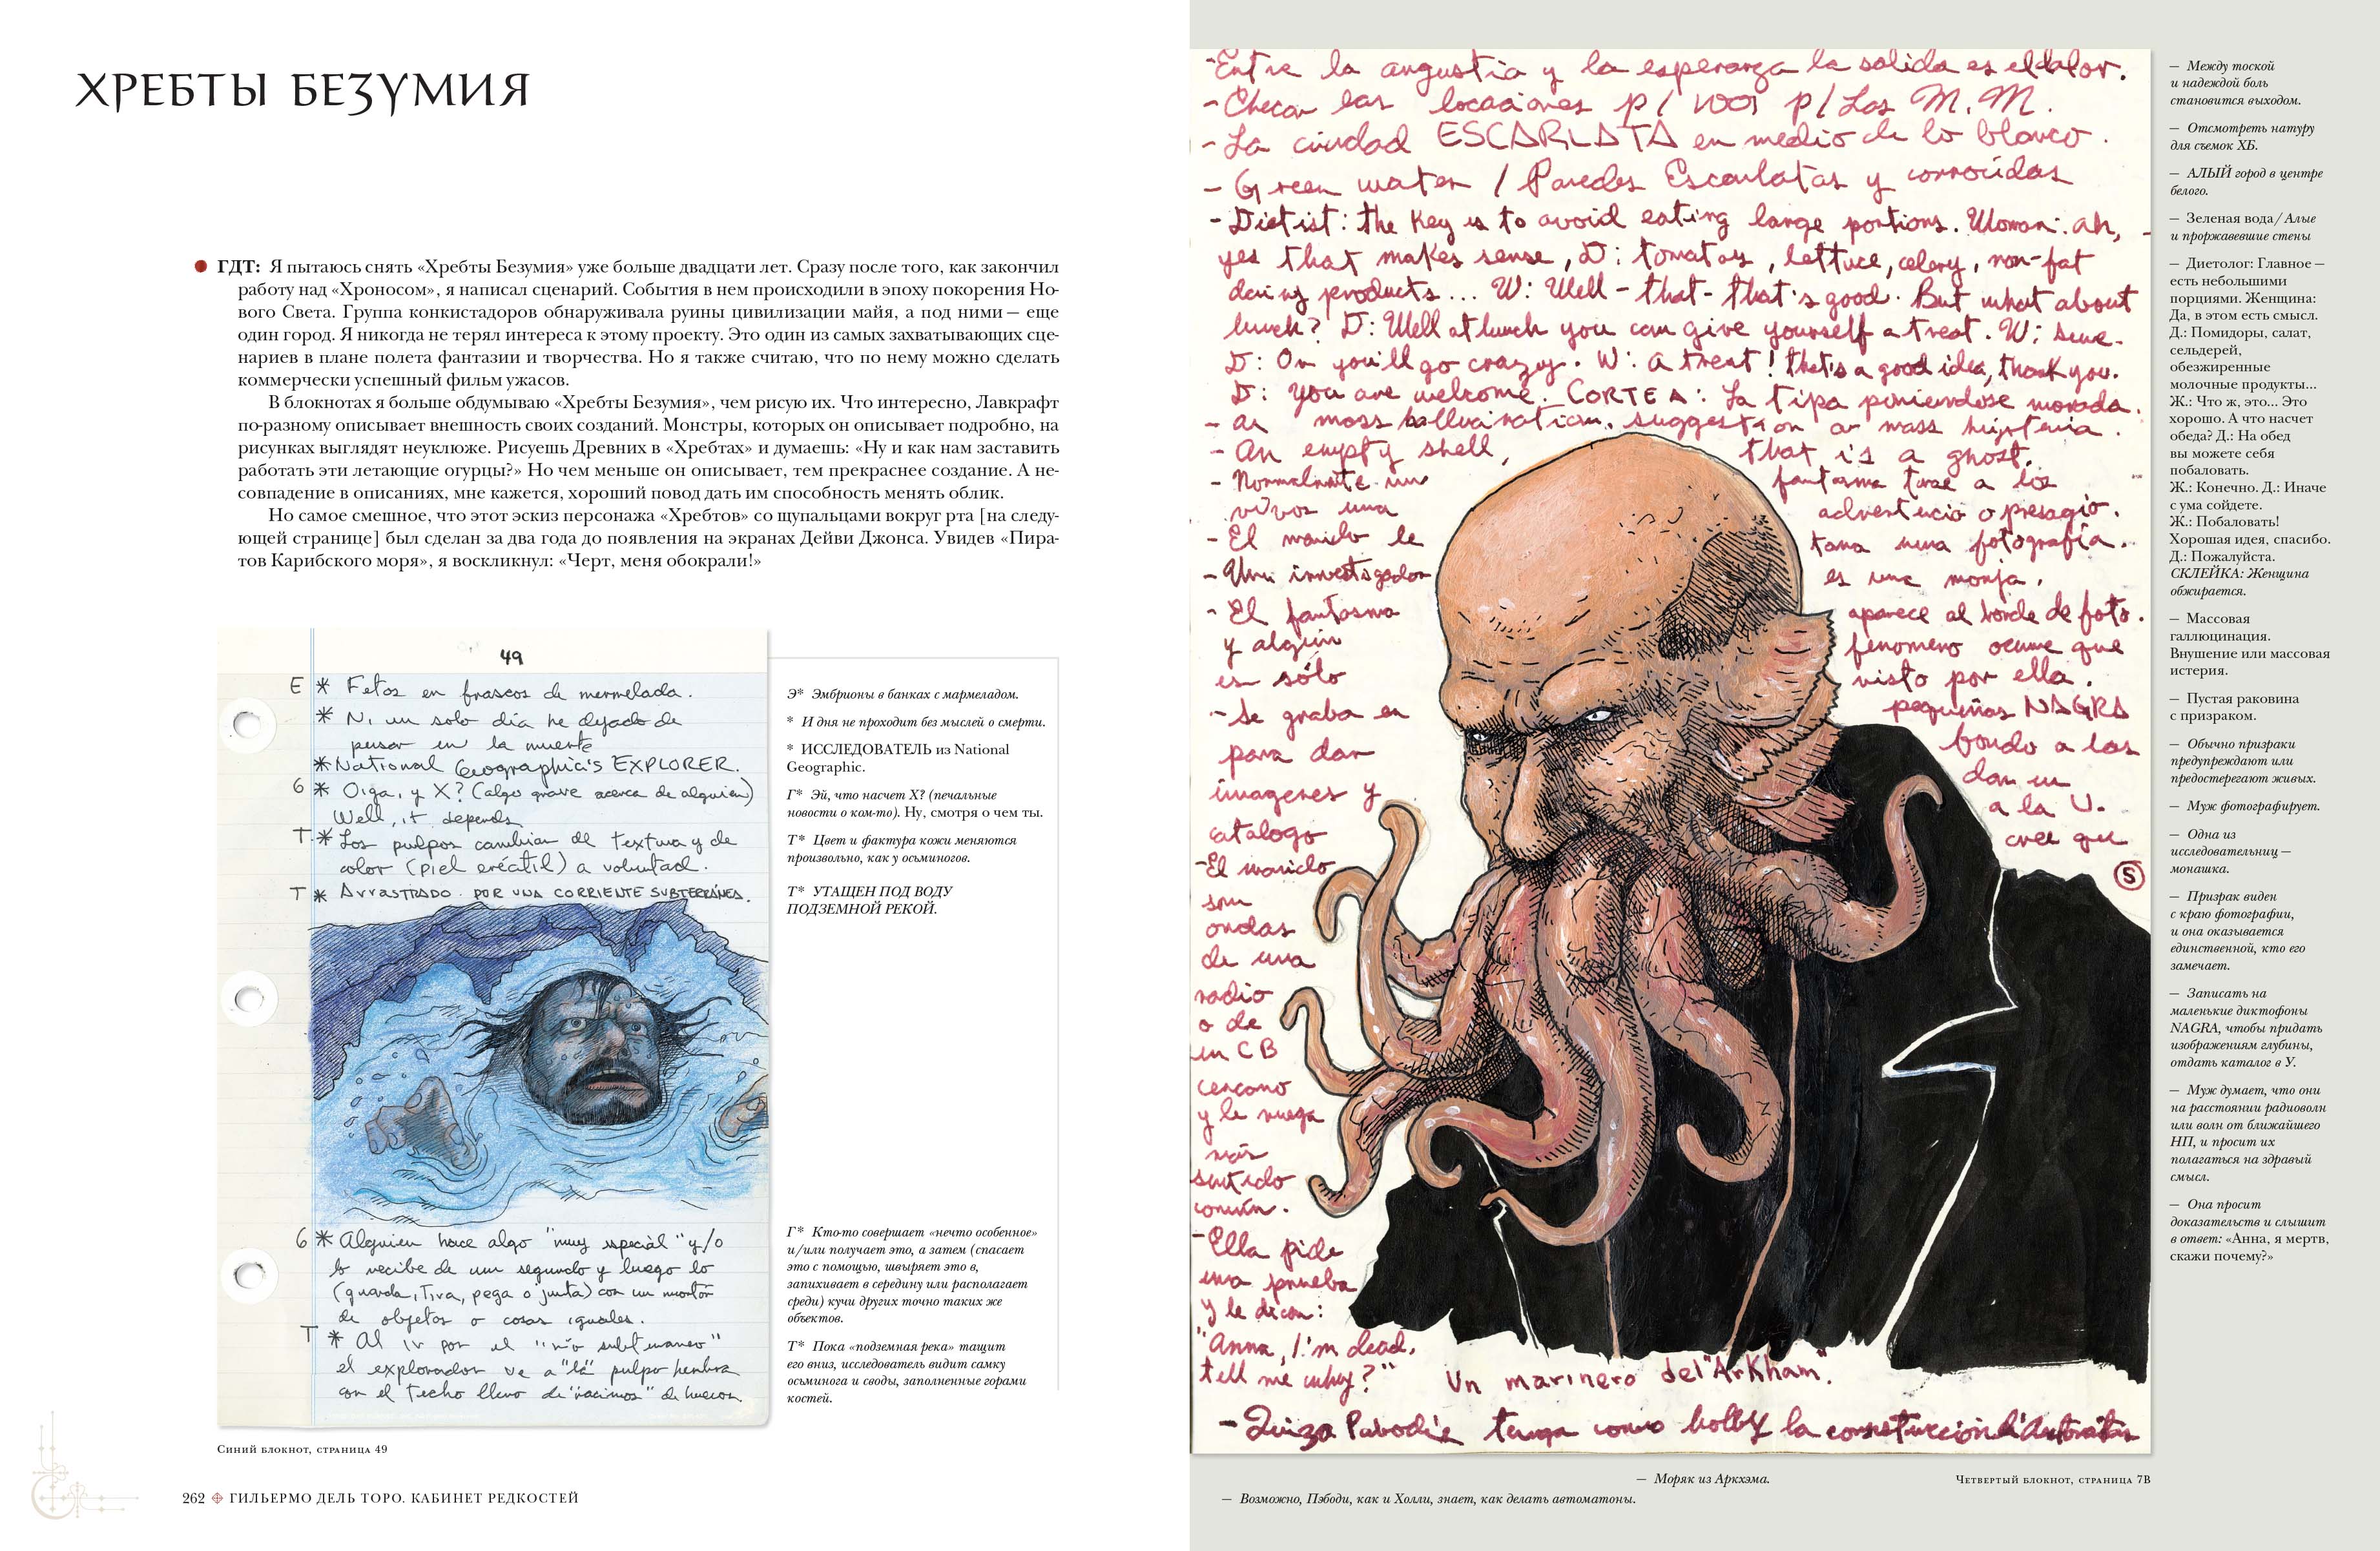 ХРЕБТЫ БЕЗУМИЯ
ГДТ: Я пытаюсь снять «Хребты Безумия» уже больше двадцати лет. Сразу после того, как закончил
работу над «Хроносом», я написал сценарий. События в нем происходили в эпоху покорения Но-
вого Света. Группа конкистадоров обнаруживала руины цивилизации майя, а под ними — еще
один город. Я никогда не терял интереса к этому проекту. Это один из самых захватывающих сце-
нариев в плане полета фантазии и творчества. Но я также считаю, что по нему можно сделать
коммерчески успешный фильм ужасов.
В блокнотах я больше обдумываю «Хребты Безумия», чем рисую их. Что интересно, Лавкрафт
по-разному описывает внешность своих созданий. Монстры, которых он описывает подробно, на
рисунках выглядят неуклюже. Рисуешь Древних в «Хребтах» и думаешь: «Ну и как нам заставить
работать эти летающие огурцы?» Но чем меньше он описывает, тем прекраснее создание. А не-
совпадение в описаниях, мне кажется, хороший повод дать им способность менять облик.
Но самое смешное, что этот эскиз персонажа «Хребтов» со щупальцами вокруг рта [на следу-
ющей странице] был сделан за два года до появления на экранах Дейви Джонса. Увидев «Пира-
тов Карибского моря», я воскликнул: «Черт, меня обокрали!»
49
E * Fetos en frascos de mermelada.
* Ni un solo día he dejado de
pensar en la muerte
* National Geographic's EXPLORER.
G * Oiga, y X? (algo grave acerca de alguien)
Well, it depends
T * Los pulpos cambian de textura y de
color (piel eréctil) a voluntad.
T * ARRASTRADO POR UNA CORRIENTE SUBTERRÁNEA.
G * Alguien hace algo "muy especial" y/o
lo recibe de un segundo y luego lo
(guarda, tira, pega o junta) con un montón
de objetos o cosas iguales.
T * Al ir por el "río subterraneo"
el explorador ve a "la" pulpo hembra
con el techo lleno de "racimos" de huevos
Э* Эмбрионы в банках с мармеладом.
* И дня не проходит без мыслей о смерти.
* ИССЛЕДОВАТЕЛЬ из National
Geographic.
Г* Эй, что насчет X? (печальные
новости о ком-то). Ну, смотря о чем ты.
Т* Цвет и фактура кожи меняются
произвольно, как у осьминогов.
Т* УТАЩЕН ПОД ВОДУ
ПОДЗЕМНОЙ РЕКОЙ.
Г* Кто-то совершает «нечто особенное»
и/или получает это, а затем (спасает
это с помощью, швыряет это в,
запихивает в середину или располагает
среди) кучи других точно таких же
объектов.
Т* Пока «подземная река» тащит
его вниз, исследователь видит самку
осьминога и своды, заполненные горами
костей.
Синий блокнот, страница 49
262 ГИЛЬЕРМО ДЕЛЬ ТОРО. КАБИНЕТ РЕДКОСТЕЙ
- Entre la angustia y la esperanza la salida es el dolor.
- Checar las locaciones p/ p/ Las M.M.
- La ciudad ESCARLATA en medio de lo blanco.
- Green water / Paredes Escarlatas y corroídas
- Dietist: the key is to avoid eating large portions. Woman: ah,
yes that makes sense, D: tomatoes, lettuce, celery, non-fat
dairy products... W: Well - that - that's good. But what about
lunch? D: Well at lunch you can give yourself a treat. W: Sure.
D: Or you'll go crazy. W: A treat! that's a good idea, thank you.
D: You are welcome. CORTE A: La tipa poniendose morada.
- a mass hallucination, suggestion or mass hysteria.
- An empty shell, that is a ghost.
- Normalmente un fantasma trae a los
vivos una advertencia o presagio.
- El marido le toma una fotografía.
- Una investigadora es una monja.
- El fantasma aparece al borde de foto.
y algún fenomeno ocurre que
es sólo visto por ella.
- Se graba en pequeñas NAGRA
para dar fondo a las
imagenes y dan un
catalogo a la U.
- El marido cree que
son
ondas
de una
radio
o de
un CB
cercano
y le ruega
más
sentido
común.
- Ella pide
una prueba
y le dicen:
"Anna, I'm dead,
tell me why?"
S
Un marinero del "Arkham".
- Quiza Pabodie tenga como hobby la construcción d'Automatas
— Между тоской
и надеждой боль
становится выходом.
— Отсмотреть натуру
для съемок ХБ.
— АЛЫЙ город в центре
белого.
— Зеленая вода/Алые
и проржавевшие стены
— Диетолог: Главное —
есть небольшими
порциями. Женщина:
Да, в этом есть смысл.
Д.: Помидоры, салат,
сельдерей,
обезжиренные
молочные продукты...
Ж.: Что ж, это... Это
хорошо. А что насчет
обеда? Д.: На обед
вы можете себя
побаловать.
Ж.: Конечно. Д.: Иначе
с ума сойдете.
Ж.: Побаловать!
Хорошая идея, спасибо.
Д.: Пожалуйста.
СКЛЕЙКА: Женщина
обжирается.
— Массовая
галлюцинация.
Внушение или массовая
истерия.
— Пустая раковина
с призраком.
— Обычно призраки
предупреждают или
предостерегают живых.
— Муж фотографирует.
— Одна из
исследовательниц —
монашка.
— Призрак виден
с краю фотографии,
и она оказывается
единственной, кто его
замечает.
— Записать на
маленькие диктофоны
NAGRA, чтобы придать
изображениям глубины,
отдать каталог в У.
— Муж думает, что они
на расстоянии радиоволн
или волн от ближайшего
НП, и просит их
полагаться на здравый
смысл.
— Она просит
доказательств и слышит
в ответ: «Анна, я мертв,
скажи почему?»
— Моряк из Аркхэма.
Четвертый блокнот, страница 7В
— Возможно, Пэбоди, как и Холли, знает, как делать автоматоны.